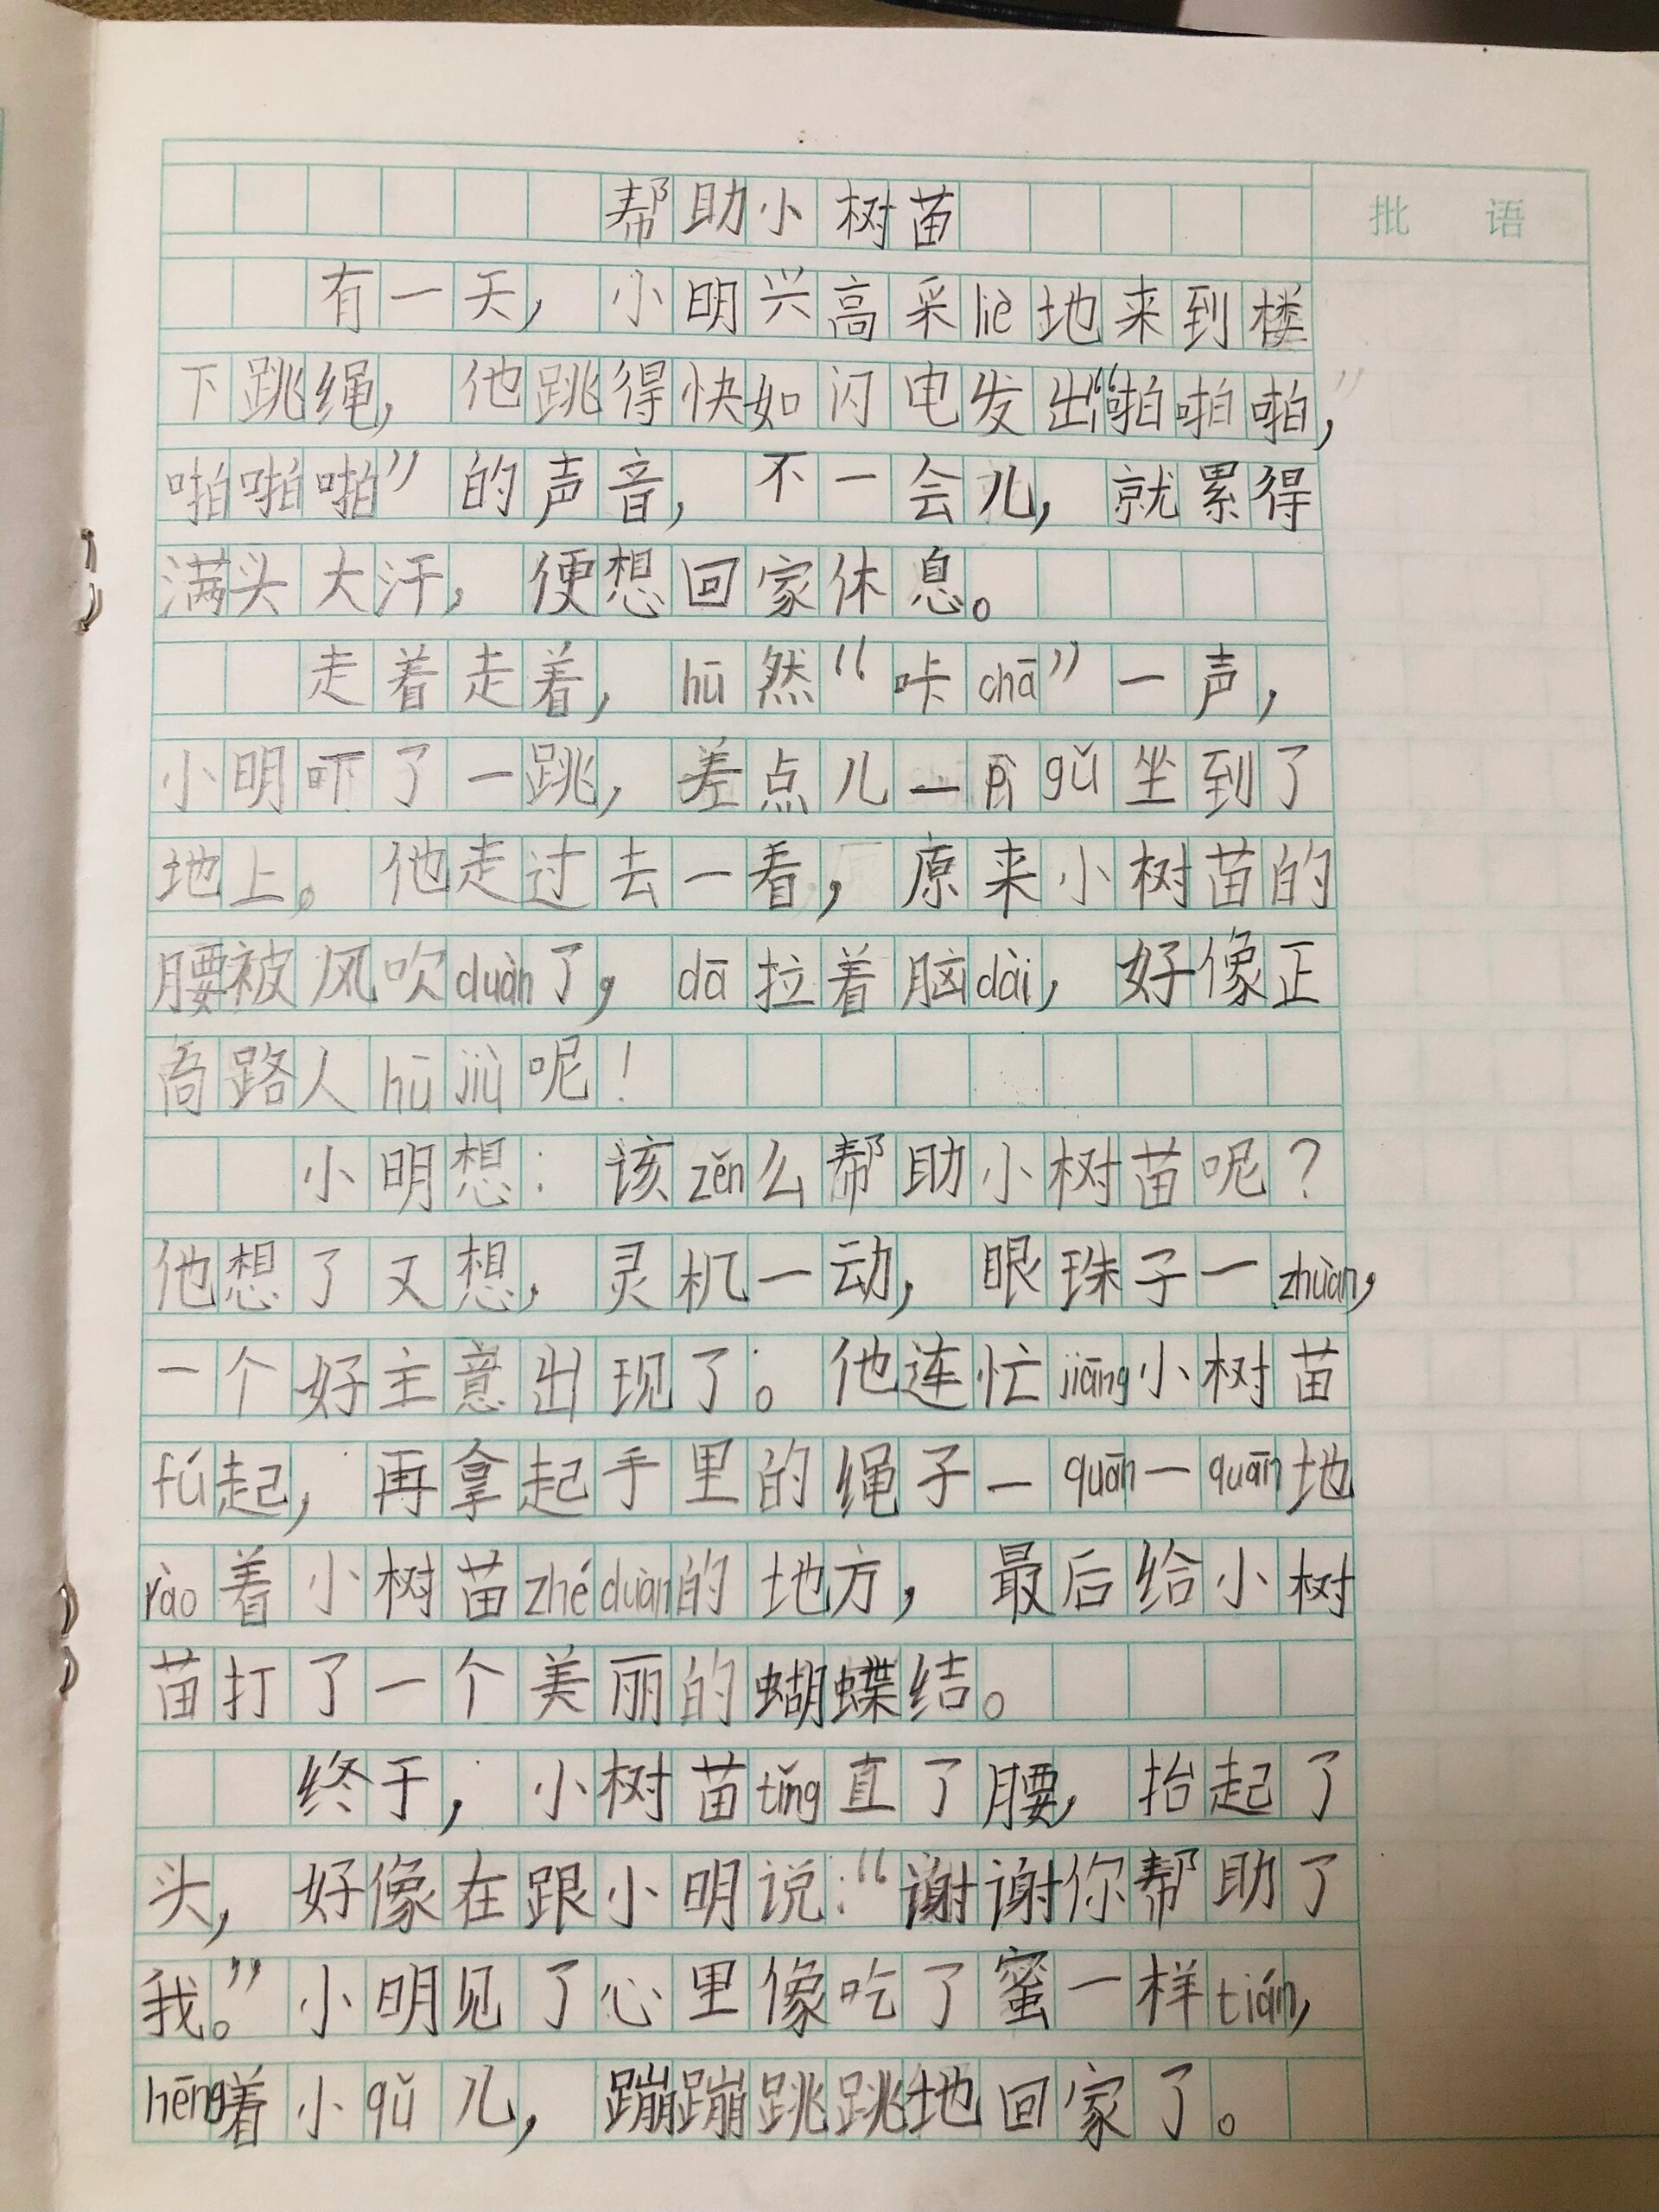 帮助小树苗
批语
有一天，小明兴高采liè地来到楼
下跳绳，他跳得快如闪电发出“啪啪啪，”
啪啪啪”的声音，不一会儿，就累得
满头大汗，便想回家休息。
走着走着，hū然“咔chā”一声，
小明吓了一跳，差点儿一pì gǔ坐到了
地上。他走过去一看，原来小树苗的
腰被风吹duàn了，dā拉着脑dài，好像正
向路人hū jiù呢！
小明想：该zěn么帮助小树苗呢？
他想了又想，灵机一动，眼珠子一zhuàn，
一个好主意出现了。他连忙jiāng小树苗
fú起，再拿起手里的绳子一quān一quān地
rào着小树苗zhé duàn的地方，最后给小树
苗打了一个美丽的蝴蝶结。
终于，小树苗tǐng直了腰，抬起了
头，好像在跟小明说：“谢谢你帮助了
我。”小明见了心里像吃了蜜一样tián，
hēng着小qǔ儿，蹦蹦跳跳地回家了。